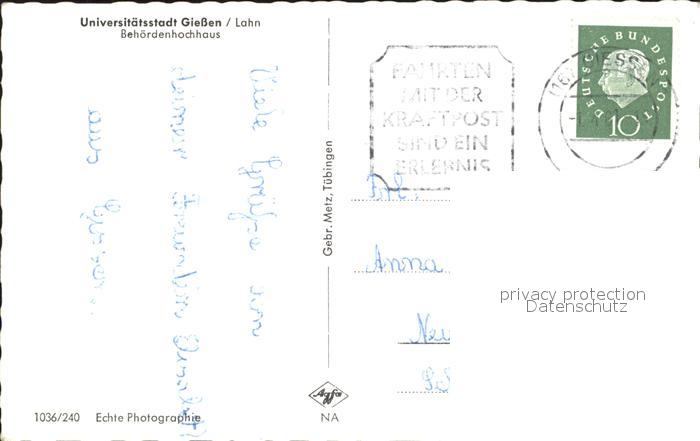 Universitätsstadt Gießen / Lahn
Behördenhochhaus
Viele Grüße von
deiner Freundin
aus Giessen.
1036/240 Echte Photographie
Gebr. Metz, Tübingen
Agfa
NA
FAHRTEN
MIT DER
KRAFTPOST
SIND EIN
ERLEBNIS
(16) GIESSEN
DEUTSCHE BUNDESPOST
10
Frl.
Anna
Neu
privacy protection
Datenschutz